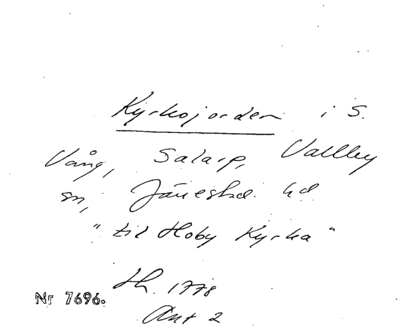 Kyrkojorden i S.
Vång, Salarp, Vallby
sn, Järrestad hd
"til Hoby Kyrka"
Nr 7696.
Lh. 1778
Akt 2